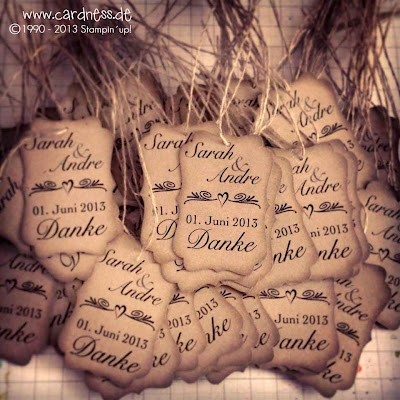 www.cardness.de
©1990 - 2013 Stampin´up!
Sarah
&
Andre
01. Juni 2013
Danke
Sarah
&
Andre
01. Juni 2013
Danke
Sarah
&
Andre
01. Juni 2013
Danke
Sarah
&
Andre
01. Juni 2013
Danke